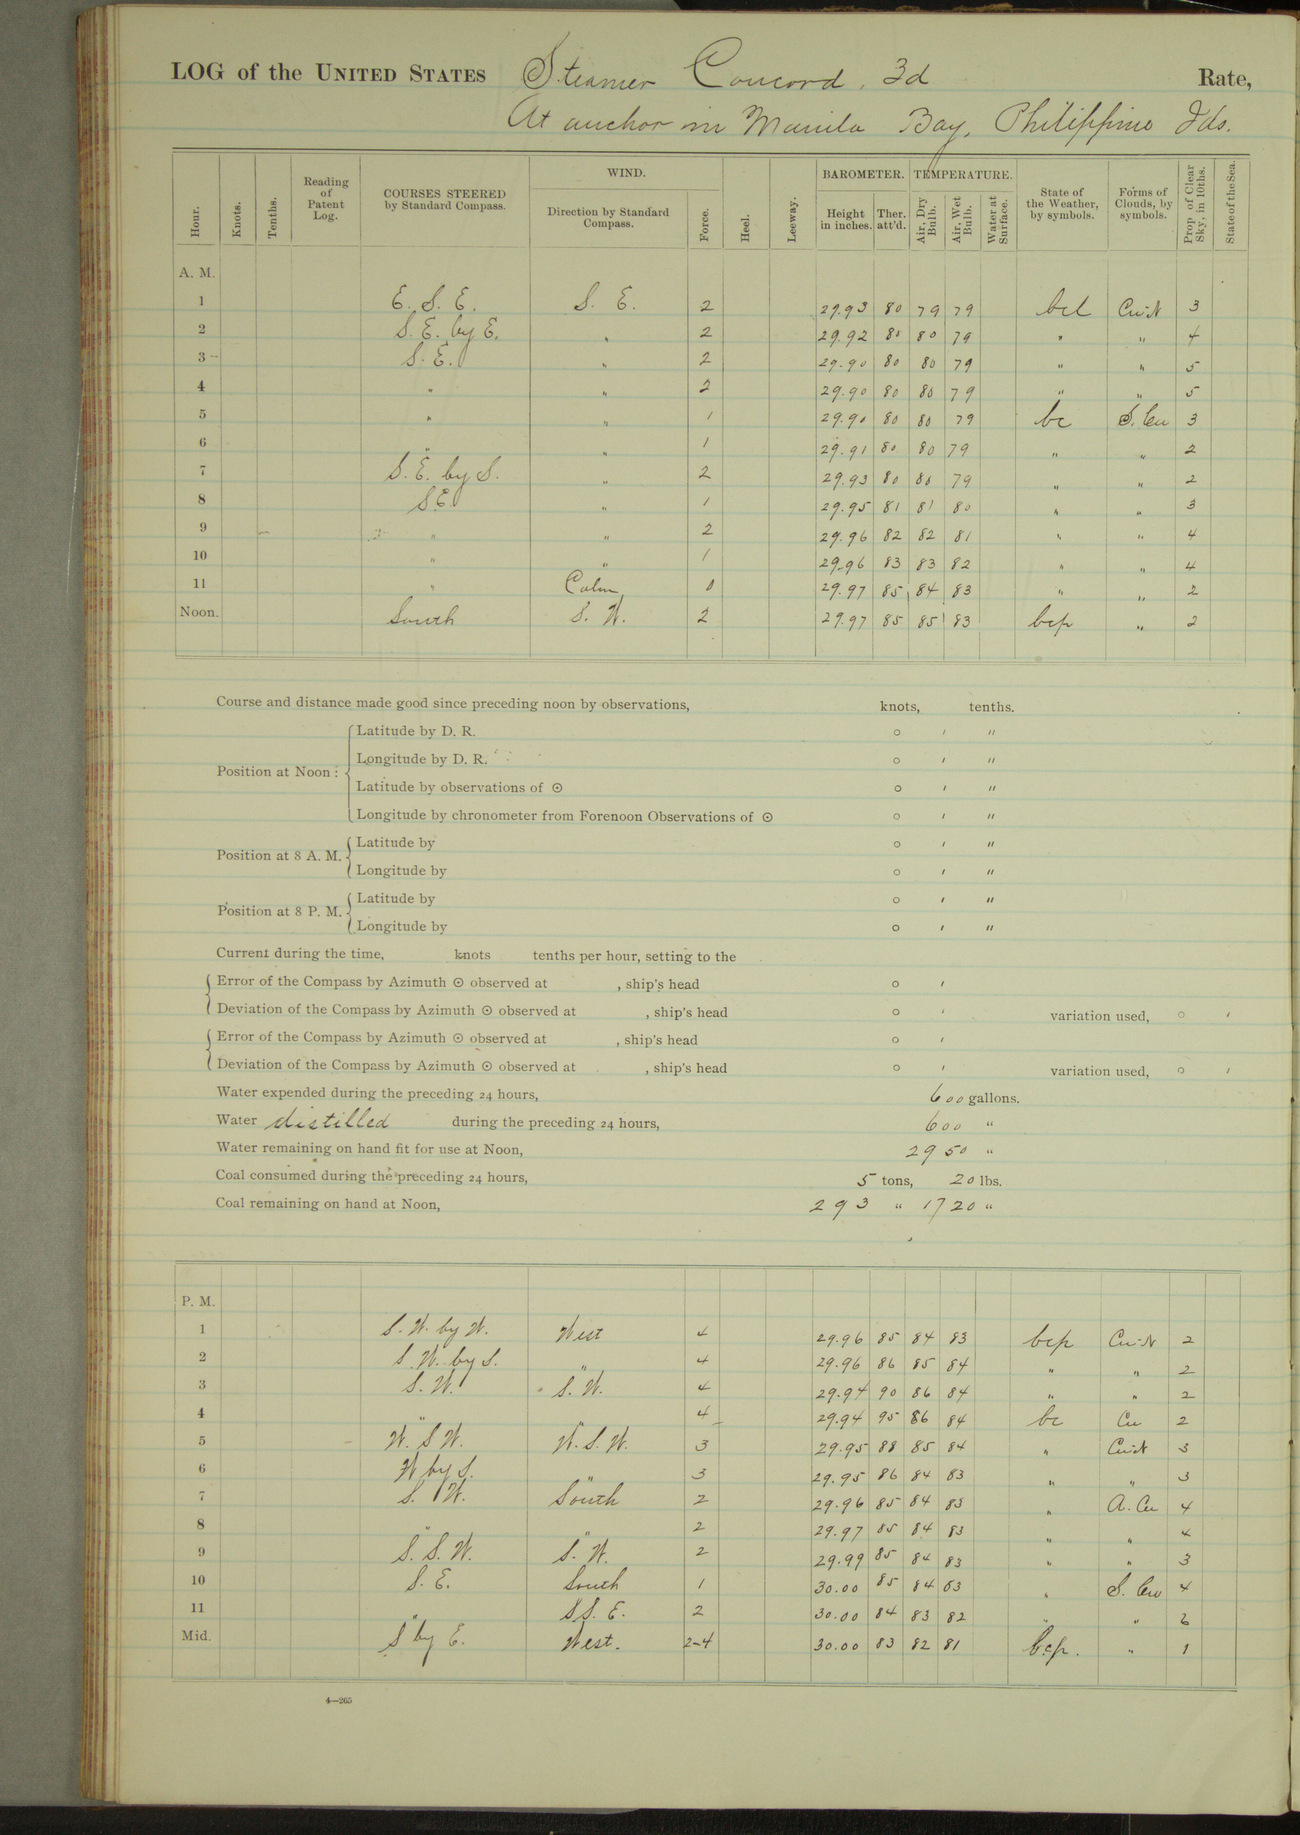 LOG of the UNITED STATES Steamer Concord, 3d Rate,
At anchor in Manila Bay, Philippine Ids.
Hour. Knots. Tenths. Reading of Patent Log. COURSES STEERED by Standard Compass. WIND. Direction by Standard Compass. Force. Heel. Leeway. BAROMETER. Height in inches. Ther. att'd. TEMPERATURE. Air, Dry Bulb. Air, Wet Bulb. Water at Surface. State of the Weather, by symbols. Forms of Clouds, by symbols. Prop. of Clear Sky, in 10ths. State of the Sea.
A. M.
1 E. S. E. S. E. 2 29.93 80 79 79 bcl Cu-N 3
2 S. E. by E. " 2 29.92 80 80 79 " " 4
3 S. E. " 2 29.90 80 80 79 " " 5
4 " " 2 29.90 80 80 79 " " 5
5 " " 1 29.90 80 80 79 bc S. Cu 3
6 " " 1 29.91 80 80 79 " " 2
7 S. E. by S. " 2 29.93 80 80 79 " " 2
8 S.E. " 1 29.95 81 81 80 " " 3
9 " " 2 29.96 82 82 81 " " 4
10 " " 1 29.96 83 83 82 " " 4
11 " Calm 0 29.97 85 84 83 " " 2
Noon. South S. W. 2 29.97 85 85 83 bcp " 2
Course and distance made good since preceding noon by observations, knots, tenths.
Position at Noon: Latitude by D. R. ° ′ ″
Longitude by D. R. ° ′ ″
Latitude by observations of ☉ ° ′ ″
Longitude by chronometer from Forenoon Observations of ☉ ° ′ ″
Position at 8 A. M. Latitude by ° ′ ″
Longitude by ° ′ ″
Position at 8 P. M. Latitude by ° ′ ″
Longitude by ° ′ ″
Current during the time, knots tenths per hour, setting to the
Error of the Compass by Azimuth ☉ observed at , ship's head ° ′
Deviation of the Compass by Azimuth ☉ observed at , ship's head ° ′ variation used, ° ′
Error of the Compass by Azimuth ☉ observed at , ship's head ° ′
Deviation of the Compass by Azimuth ☉ observed at , ship's head ° ′ variation used, ° ′
Water expended during the preceding 24 hours, 600 gallons.
Water distilled during the preceding 24 hours, 600 "
Water remaining on hand fit for use at Noon, 2950 "
Coal consumed during the preceding 24 hours, 5 tons, 20 lbs.
Coal remaining on hand at Noon, 293 " 1720 "
P. M.
1 S. W. by W. West 4 29.96 85 84 83 bcp Cu-N 2
2 S. W. by S. " 4 29.96 86 85 84 " " 2
3 S. W. S. W. 4 29.94 90 86 84 " " 2
4 " " 4 29.94 95 86 84 bc Cu 2
5 W. S. W. W. S. W. 3 29.95 88 85 84 " Cu-N 3
6 W by S. " 3 29.95 86 84 83 " " 3
7 S. W. South 2 29.96 85 84 83 " A. Cu 4
8 " " 2 29.97 85 84 83 " " 4
9 S. S. W. S. W. 2 29.99 85 84 83 " " 3
10 S. E. South 1 30.00 85 84 83 " S. Cu 4
11 " S S. E. 2 30.00 84 83 82 " " 6
Mid. S by E. West. 2-4 30.00 83 82 81 bcp. " 1
4—265